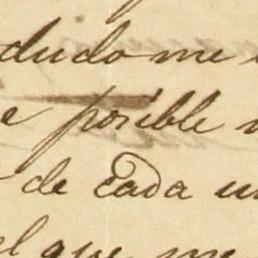 dudo me
posible
de cada un
el que me